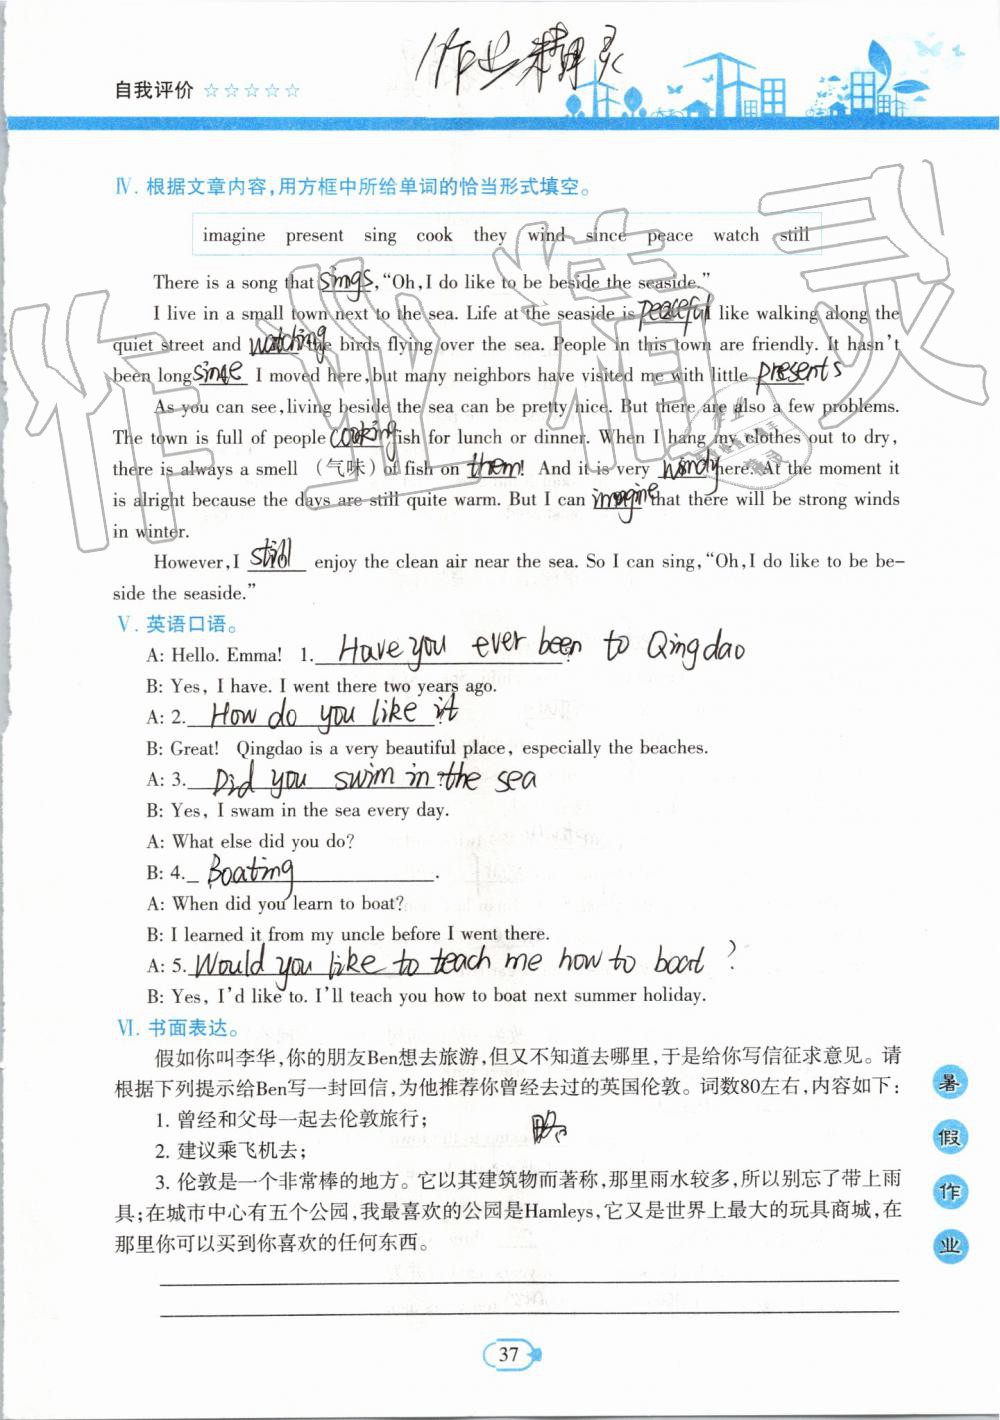 作业精灵
自我评价 ☆☆☆☆☆
Ⅳ. 根据文章内容,用方框中所给单词的恰当形式填空。
imagine present sing cook they wind since peace watch still
There is a song that sings, “Oh, I do like to be beside the seaside.”
I live in a small town next to the sea. Life at the seaside is peaceful like walking along the
quiet street and watching the birds flying over the sea. People in this town are friendly. It hasn’t
been long since I moved here, but many neighbors have visited me with little presents
As you can see, living beside the sea can be pretty nice. But there are also a few problems.
The town is full of people cooking fish for lunch or dinner. When I hang my clothes out to dry,
there is always a smell (气味) of fish on them! And it is very windy here. At the moment it
is alright because the days are still quite warm. But I can imagine that there will be strong winds
in winter.
However, I still enjoy the clean air near the sea. So I can sing, “Oh, I do like to be be-
side the seaside.”
Ⅴ. 英语口语。
A: Hello. Emma! 1. Have you ever been to Qingdao?
B: Yes, I have. I went there two years ago.
A: 2. How do you like it?
B: Great! Qingdao is a very beautiful place, especially the beaches.
A: 3. Did you swim in the sea?
B: Yes, I swam in the sea every day.
A: What else did you do?
B: 4. Boating.
A: When did you learn to boat?
B: I learned it from my uncle before I went there.
A: 5. Would you like to teach me how to boat?
B: Yes, I’d like to. I’ll teach you how to boat next summer holiday.
Ⅵ. 书面表达。
假如你叫李华,你的朋友Ben想去旅游,但又不知道去哪里,于是给你写信征求意见。请
根据下列提示给Ben写一封回信,为他推荐你曾经去过的英国伦敦。词数80左右,内容如下:
1. 曾经和父母一起去伦敦旅行;
略
2. 建议乘飞机去;
3. 伦敦是一个非常棒的地方。它以其建筑物而著称,那里雨水较多,所以别忘了带上雨
具;在城市中心有五个公园,我最喜欢的公园是Hamleys,它又是世界上最大的玩具商城,在
那里你可以买到你喜欢的任何东西。
暑
假
作
业
37
作业精灵